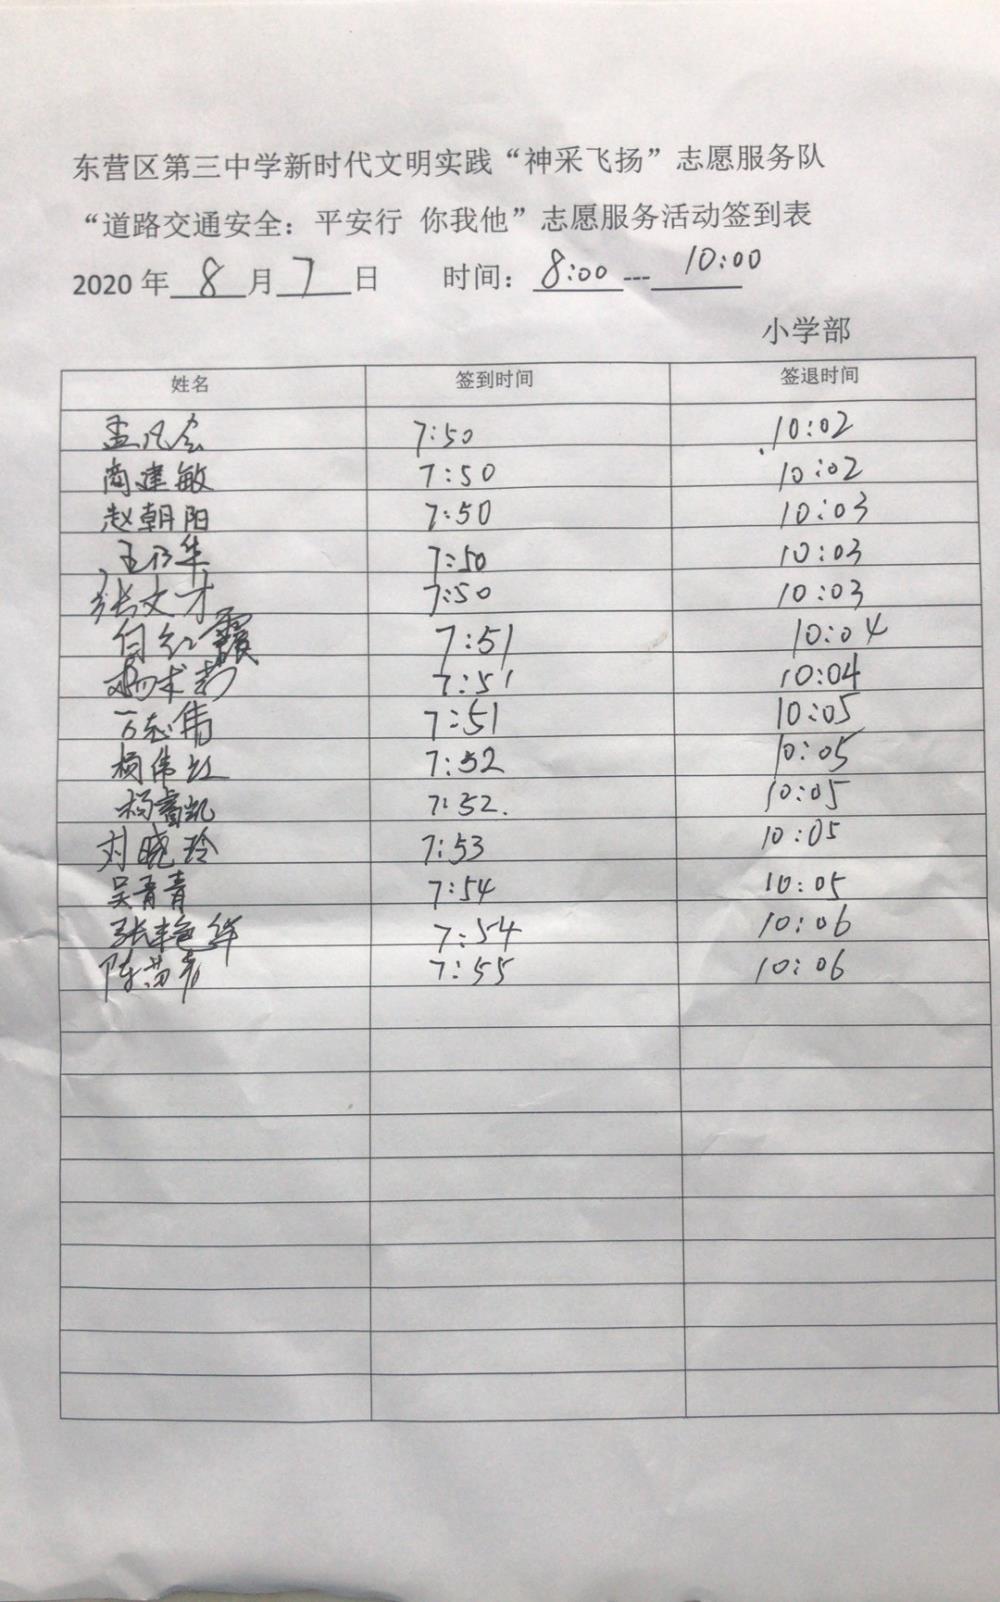 东营区第三中学新时代文明实践“神采飞扬”志愿服务队
“道路交通安全：平安行 你我他”志愿服务活动签到表
2020 年 8 月 7 日 时间：8:00---10:00
小学部
姓名 签到时间 签退时间
孟凡会 7:50 10:02
商建敏 7:50 10:02
赵朝阳 7:50 10:03
王乃华 7:50 10:03
张文才 7:50 10:03
白红霞 7:51 10:04
杨术莉 7:51 10:04
万志伟 7:51 10:05
杨伟红 7:52 10:05
杨睿凯 7:52. 10:05
刘晓玲 7:53 10:05
吴青青 7:54 10:05
张艳华 7:54 10:06
陈 7:55 10:06